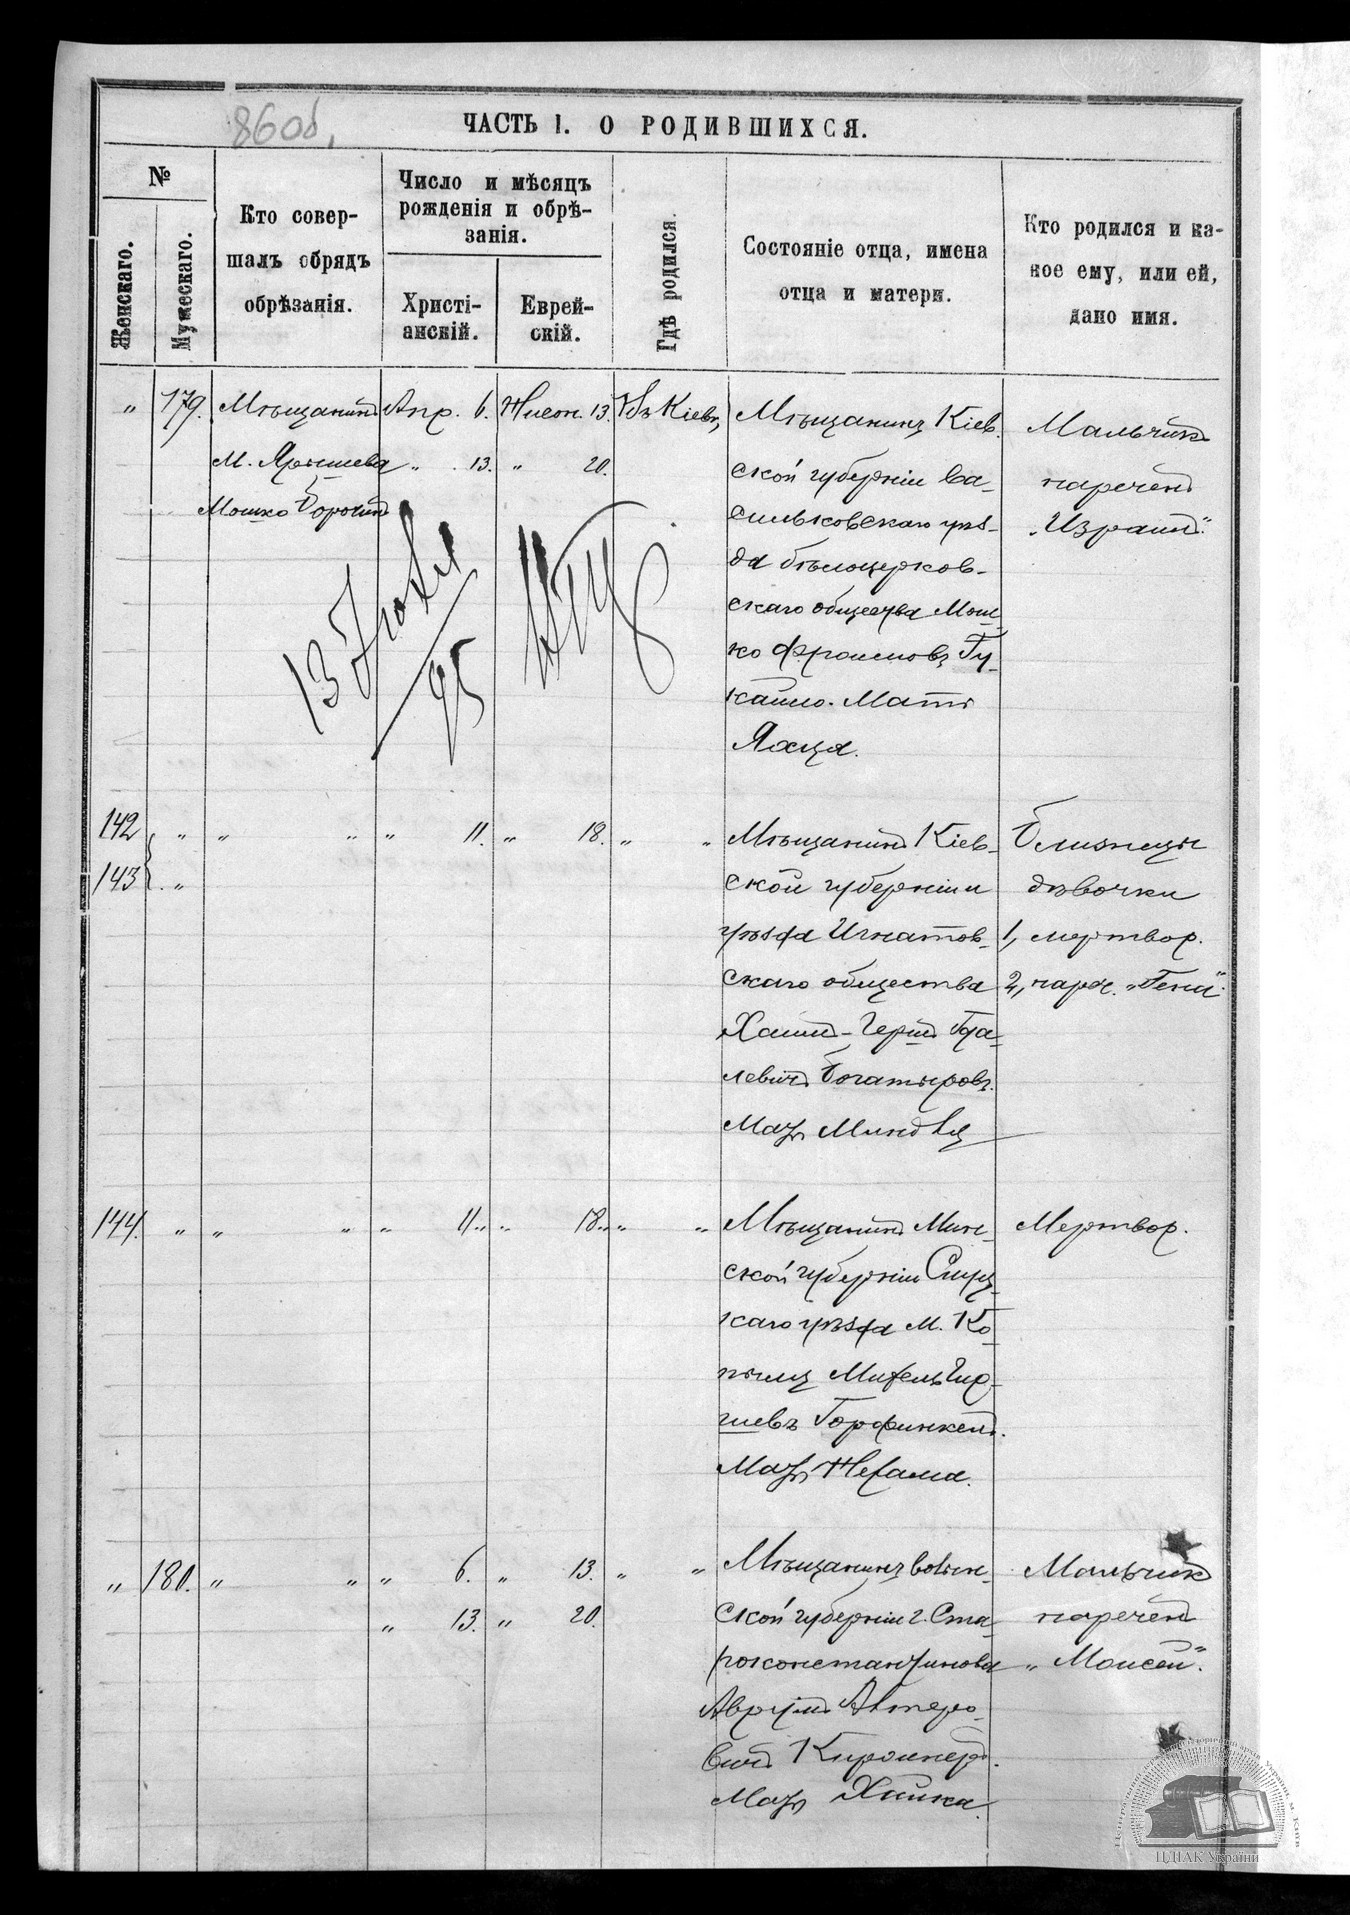 86об.
ЧАСТЬ I. О РОДИВШИХСЯ.
№
Женскаго.
Мужескаго.
Кто совер-
шалъ обрядъ
обрѣзанія.
Число и мѣсяцъ
рожденія и обрѣ-
занія.
Христі-
анскій.
Еврей-
скій.
Гдѣ родился.
Состояніе отца, имена
отца и матери.
Кто родился и ка-
кое ему, или ей,
дано имя.
„ 179. Мѣщанинъ Апр. 6. Нисон. 13. Въ Кіевѣ,
М. Ярышева „ 13. „ 20.
Мошко
Мѣщанинъ Кіев-
ской губерніи Ва-
сильковскаго уѣз-
да бѣлоцерков-
скаго общества Мош-
ко Фроимовъ
Мать
Мальчикъ
нареченъ
„Израиль“
13 Іюля
95
142 „ „ „ „ 11. „ 18. „ „
143 „
Мѣщанинъ Кіев-
ской губерніи и
уѣзда Игнатов-
скаго общества
Хаимъ-Гершъ
левичъ Богатыровъ.
Мать
Близнецы
дѣвочки
1, мертвор.
2, нареч. „Геня“.
144. „ „ „ „ 11. „ 18. „ „
Мѣщанинъ Мин-
ской губерніи Слуц-
каго уѣзда М. Ко-
пыля
шевъ Горфинкель.
Мать Нехама.
Мертвор.
„ 180. „ „ „ 6. „ 13. „ „
„ 13. „ 20.
Мѣщанинъ Волын-
ской губерніи г. Ста-
роконстантинова
Аврумъ
вичъ
Мать Хайка.
Мальчикъ
нареченъ
„Моисей“.
ЦДІАК України